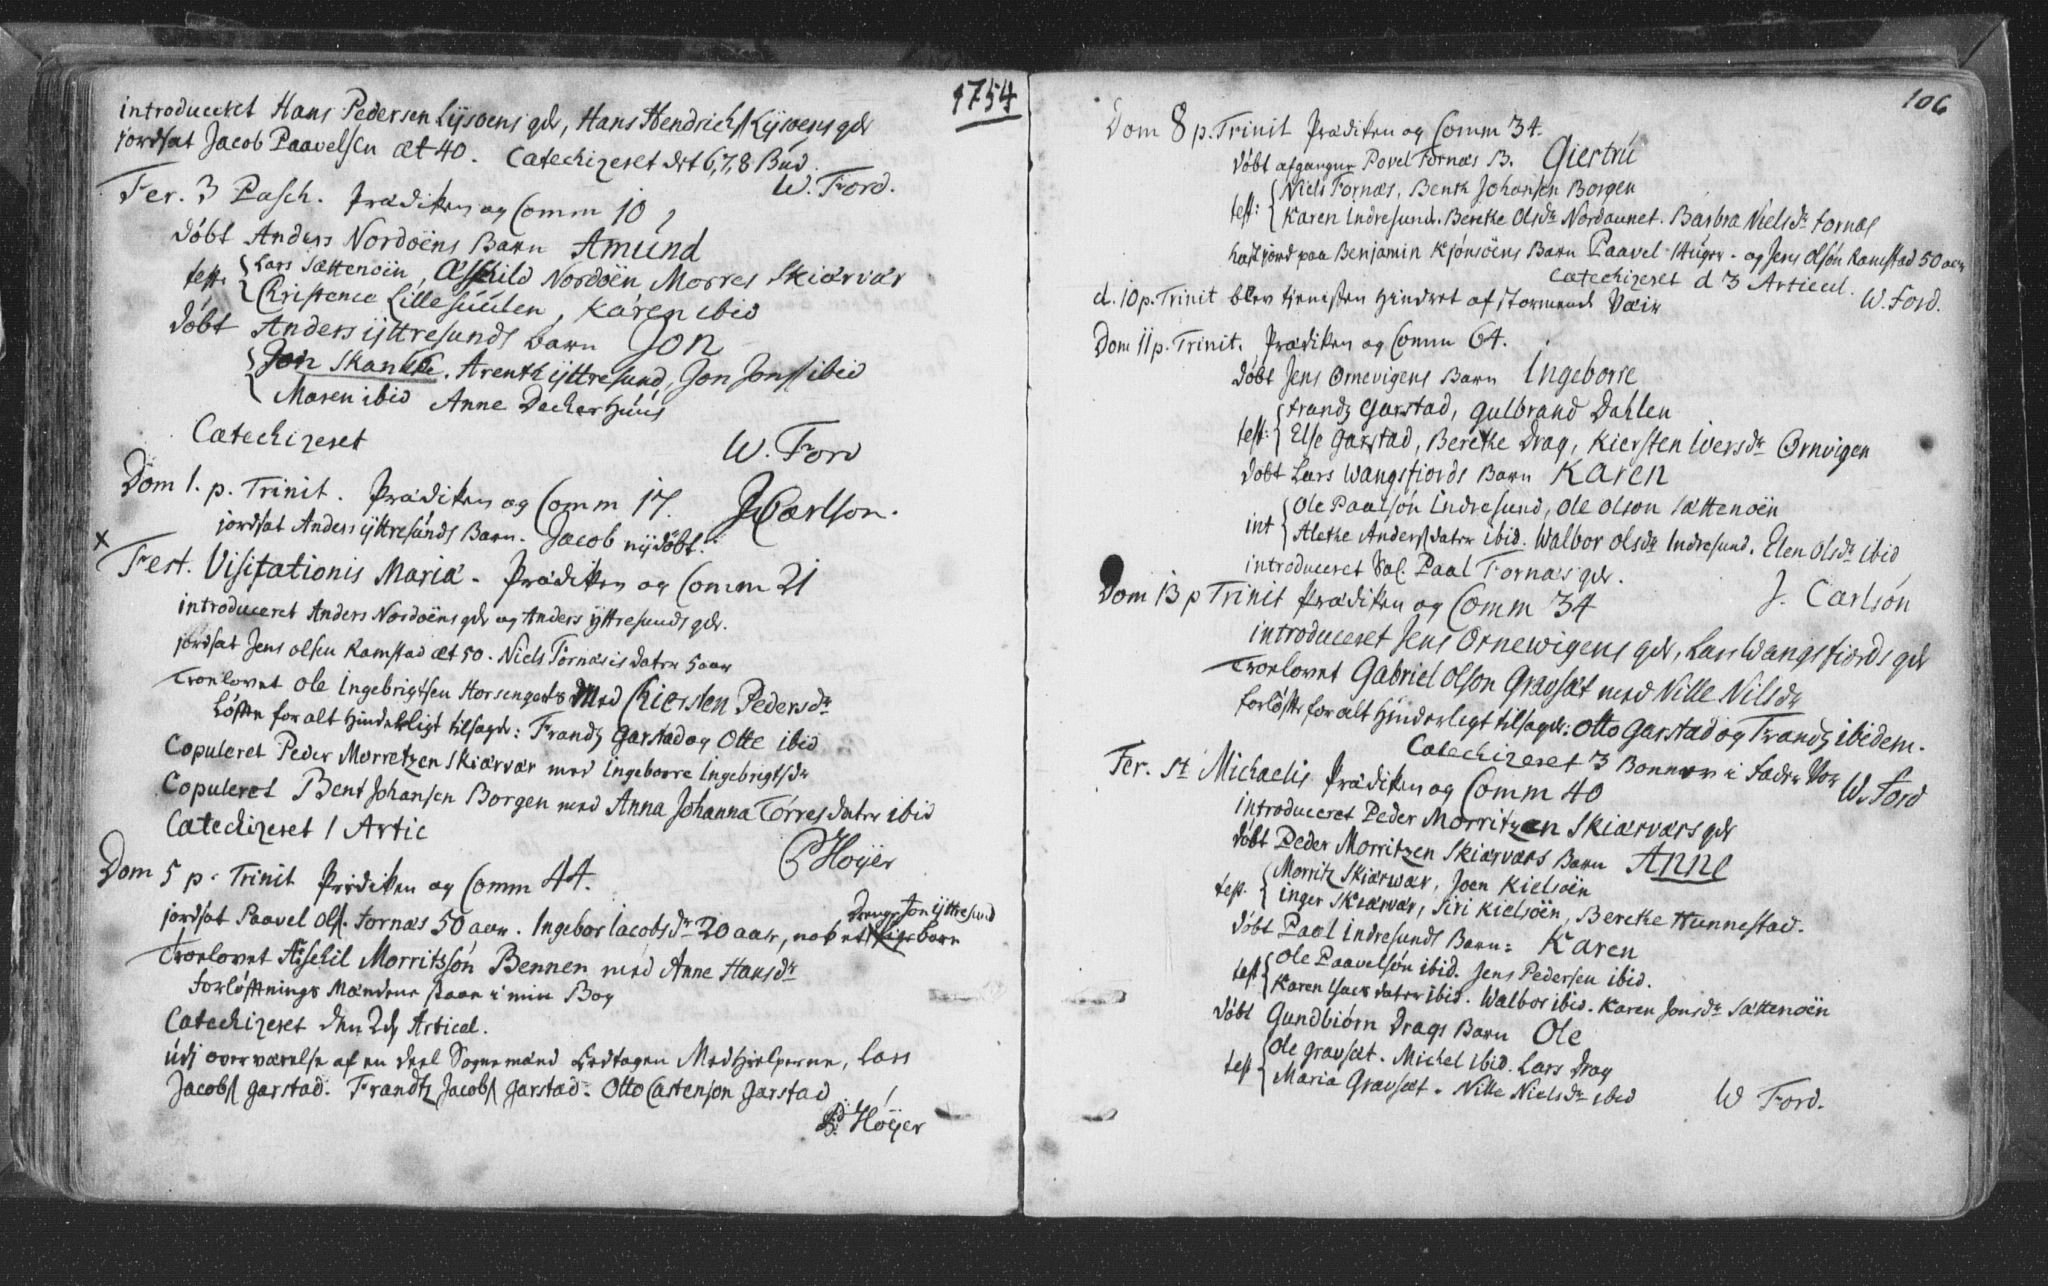 1754
introduceret Hans Pedersen Lysøens qde, Hans Hendrichs Lysøens qde
jordsat Jacob Paavelsen æt 40. Catechizeret det 6,7,8 Bud.
W. Ford.
Fer. 3 Pasch. Prædiken og Comm 10,
døbt Anders Nordøens Barn Amund
test. Lars Sættenøen, Asschild Nordøen Morres Skiærvær
Christence Lillesúúlen, Karen ibid
døbt Anders Yttresunds barn Jon
Jon Skancke. Arent Yttresund, Jon Jonss ibid
Maren ibid Anne Deckerhúús
Catechizeret
W. Ford
Dom 1. p. Trinit. Prædiken og Comm 17. J Carlson.
jordsat Anders Yttresunds Barn. Jacob nydøbt.
x
Fest. Visitationis Mariæ. Prædiken og Comm 21
introduceret Anders Nordøens qde og Anders Yttresunds qde.
jordsat Jens Olsen Ramstad æt 50. Niels Fornæsis dater 5 aar
Troelovet Ole Ingebrigtsen Horsengets Med Chiersten Pedersdr
Løfte for alt Hinderligt tilsagde: Frandz Garstad og Otte ibid
Copuleret Peder Morretzen Skiærvær med Ingeborre Ingebrigtsdr
Copuleret Bent Johansen Borgen med Anna Johanna Tørresdater ibid
Catechizeret 1 Artic
P Høyer
Dom 5 p. Trinit Prædiken og Comm 44.
Jon Yttresund
jordsat Paavel Ols. Fornæs 50 aar. Ingebor Iacobsdr 20 aar, nok et
Troelovet Asschil Morritssøn Bennen med Anne Hansdr
Forløftnings Mændene staar i min Bog
Catechizeret den 2d Articel.
udj overværelse af en deel Sognemænd Medhielperne, Lars
Jacobs Garstad. Frandtz Jacobs Garstad. Otto Castenson Garstad
Høyer
106
Dom 8 p. Trinit Prædiken og Comm 34.
døbt afgangne Povel Fornæs B. Giestru
test: Niels Fornæs, Bent Johansen Borgen
Karen Indresund. Berete Olsdr Nordaunet. Barbra Nielsdr Fornæs
kast jord paa Benjamin Kjønsøens Barn Paavel og Jens Olsøn Ramstad 50 aar
Catechizeret d 3 Articel.
d. 10 p. Trinit blev tienesten Hindret af stormende Væir
W. Ford.
Dom 11 p. Trinit. Prædiken og Comm 64.
døbt Jens Ornevigens Barn Ingeborre
test: Frandz Garstad, Gulbrand Dahlen
Else Garstad, Berete Drag, Kiersten Iversdr Ornvigen
døbt Lars Wangsfiords Barn Karen
int Ole Paalsøn Indresund, Ole Olson Sættenøen
Alette Andersdater ibid. Walbor Olsdr Indresund. Elen Olsdr ibid
introduceret Sal. Paal Fornæs qde.
J. Carlsøn
Dom 13 p Trinit Prædiken og Comm 34
introduceret Jens Ornewigens qde, Lars Wangsfiords qde
Troelovet Gabriel Olson Gravsæt med Nille Nilsdr
Forløfte for alt Hinderligt tilsagde: Otto Garstad og Frandz ibidem.
Catechizeret 3 Bønner i Fader Vor
W. Ford
Fer. St Michaelis Prædiken og Comm 40
introduceret Peder Morritzen Skiærværs qde
døbt Peder Morritzen Skiærværs Barn Anne
test. Morritz Skiærwær, Joen Kielsøen
inger Skiærvær, Siri Kielsøen, Berete Hunnestad.
døbt Paal Indresunds Barn: Karen
test Ole Paavelsøn ibid. Jens Pedersen ibid.
Karen Isacsdater ibid. Walbor ibid. Karen Jonsdr Sættenøen
døbt Gundbiørn Drags Barn Ole
test Ole Gravsæt. Michel ibid. Lars Drag
Maria Gravsæt. Nille Nielsdr ibid
W Ford.